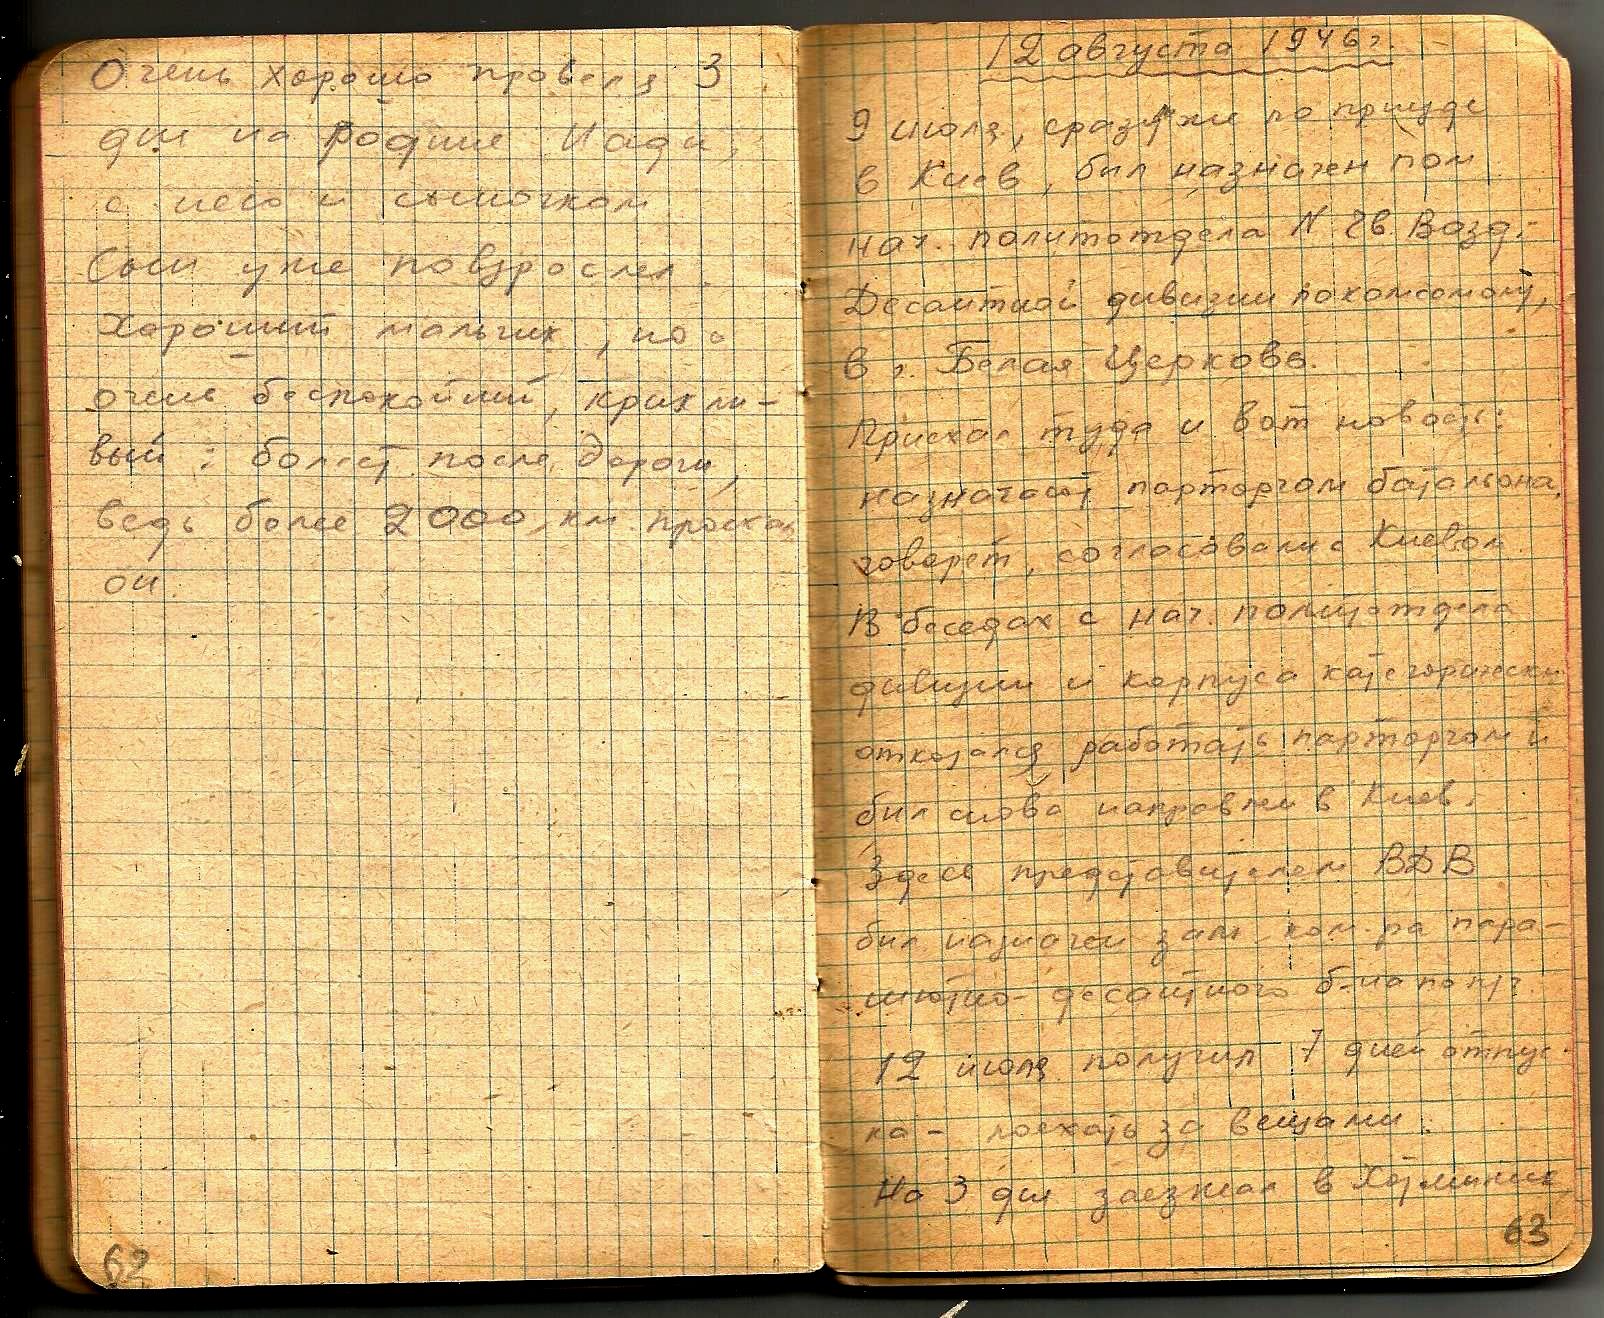 Очень хорошо провели 3
дня на Родине Нади,
с нею и сыночком
Сын уже повзрослел.
Хороший мальчик, но
очень беспокойный, крикли-
вый: болеет после дороги,
ведь более 2000 км. проехал
он.
62
12 августа 1946 г.
9 июля, сразу же по приезде
в Киев, был назначен пом
нач. политотдела N Гв Возд.
Десантной дивизии по комсомолу,
в г. Белая Церковь.
Приехал туда и вот новость:
назначают парторгом батальона,
говорят, согласовали с Киевом
В беседах с нач. политотдела
дивизии и корпуса категорически
отказался работать парторгом и
был снова направлен в Киев.
Здесь представителем ВДВ
был назначен зам. ком-ра пара-
шютно-десантного б-на по п/ч.
12 июля получил 7 дней отпус-
ка - поехать за вещами.
На 3 дня заезжал в Хотмижск
63